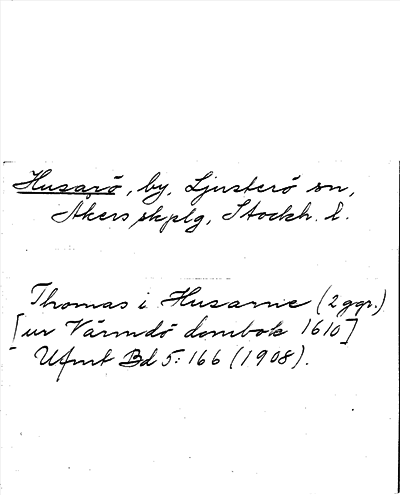 Husarö, by, Ljusterö sn,
Åkers skplg, Stockh. l.
Thomas i Husarne (2 ggr.)
[ur Värmdö dombok 1610]
Ufmt Bd 5: 166 (1908).